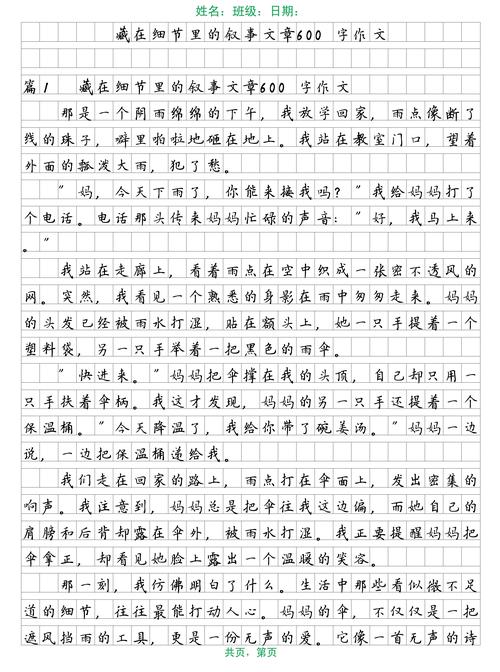 姓名：班级：日期：
藏在细节里的叙事文章600 字作文
篇1 藏在细节里的叙事文章600 字作文
那是一个阴雨绵绵的下午，我放学回家，雨点像断了
线的珠子，噼里啪啦地砸在地上。我站在教室门口，望着
外面的瓢泼大雨，犯了愁。
"妈，今天下雨了，你能来接我吗？"我给妈妈打了
个电话。电话那头传来妈妈忙碌的声音："好，我马上来
。"
我站在走廊上，看着雨点在空中织成一张密不透风的
网。突然，我看见一个熟悉的身影在雨中匆匆走来。妈妈
的头发已经被雨水打湿，贴在额头上，她一只手提着一个
塑料袋，另一只手举着一把黑色的雨伞。
"快进来。"妈妈把伞撑在我的头顶，自己却只用一
只手扶着伞柄。我这才发现，妈妈的另一只手还提着一个
保温桶。"今天降温了，我给你带了碗姜汤。"妈妈一边
说，一边把保温桶递给我。
我们走在回家的路上，雨点打在伞面上，发出密集的
响声。我注意到，妈妈总是把伞往我这边偏，而她自己的
肩膀和后背却露在伞外，被雨水打湿。我正要提醒妈妈把
伞拿正，却看见她脸上露出一个温暖的笑容。
那一刻，我仿佛明白了什么。生活中那些看似微不足
道的细节，往往最能打动人心。妈妈的伞，不仅仅是一把
遮风挡雨的工具，更是一份无声的爱。它像一首无声的诗
共页，第页